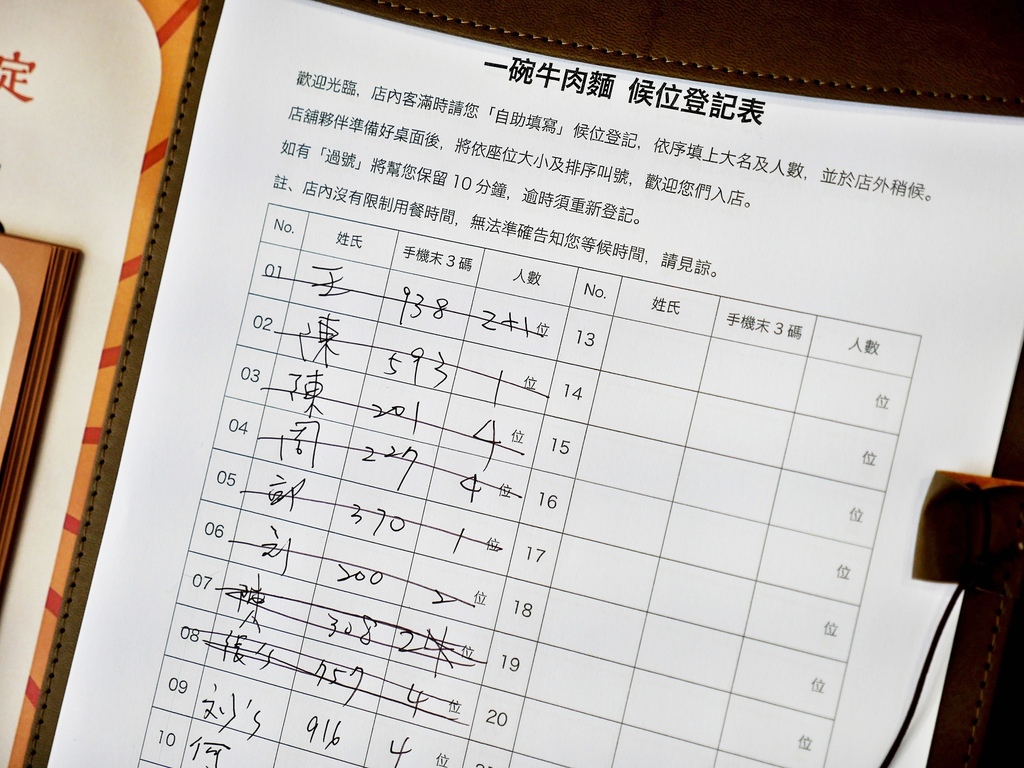 定
一碗牛肉麵 候位登記表
歡迎光臨，店內客滿時請您「自助填寫」候位登記，依序填上大名及人數，並於店外稍候。
店舖夥伴準備好桌面後，將依座位大小及排序叫號，歡迎您們入店。
如有「過號」將幫您保留 10 分鐘，逾時須重新登記。
註、店內沒有限制用餐時間，無法準確告知您等候時間，請見諒。
No. 姓氏 手機末 3 碼 人數 No. 姓氏 手機末 3 碼 人數
01 王 938 2大1 位 13 位
02 陳 593 1 位 14 位
03 陳 201 4 位 15 位
04 周 227 4 位 16 位
05 370 1 位 17 位
06 刘 200 2 位 18 位
07 陳 308 2大 位 19 位
08 張 757 4 位 20
09 刘 916 4 位
10 何